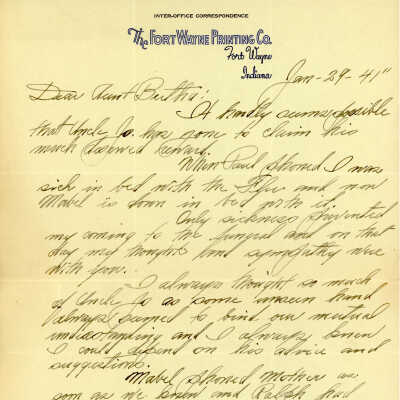 INTER-OFFICE CORRESPONDENCE
The FORT WAYNE PRINTING CO.
Fort Wayne
Indiana
Jan-29-41"
Dear Aunt Bertha:
It hardly seems possible
that Uncle Jo. has gone to claim his
much deserved reward.
When Paul phoned I was
sick in bed with the Flu and now
Mabel is down in bed with it.
Only sickness prevented
my coming to the funeral and on that
day my thoughts and sympathy were
with you.
I always thought so much
of Uncle Jo as some unseen hand
always seemed to bind our mutual
understanding and I always knew
I could depend on his advice and
suggestions.
Mabel phoned Mother as
soon as we knew and Ralph had